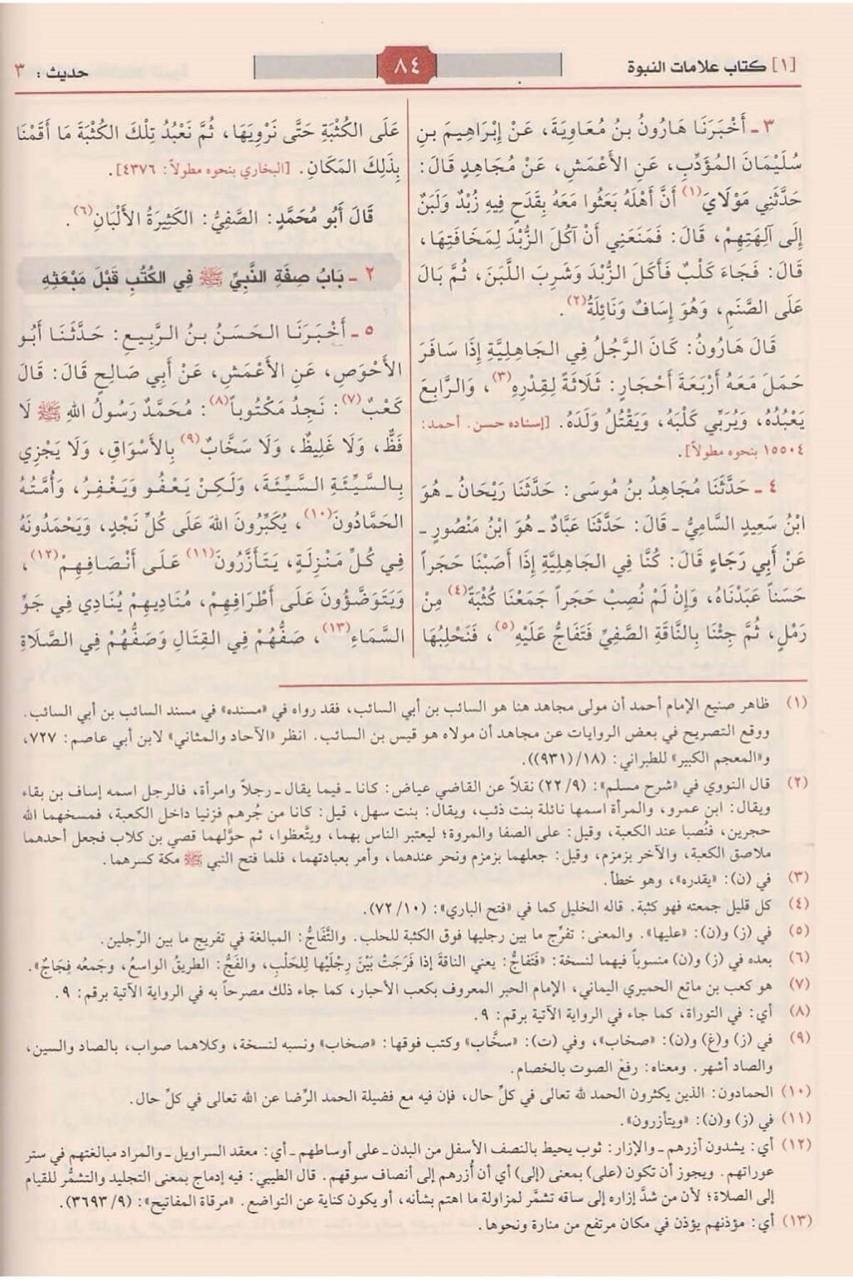 [١] كتاب علامات النبوة
٨٤
حديث: ٣
٣ ـ أَخْبَرَنَا هَارُونُ بنُ مُعَاوِيَةَ، عَنْ إِبْرَاهِيمَ بنِ
سُلَيْمَانَ المُؤَدِّبِ، عَنِ الأَعْمَشِ، عَنْ مُجَاهِدٍ قَالَ:
حَدَّثَنِي مَوْلَايَ(١) أَنَّ أَهْلَهُ بَعَثُوا مَعَهُ بِقَدَحٍ فِيهِ زُبْدٌ وَلَبَنٌ
إِلَى آلِهَتِهِمْ، قَالَ: فَمَنَعَنِي أَنْ آكُلَ الزُّبْدَ لِمَخَافَتِهَا،
قَالَ: فَجَاءَ كَلْبٌ فَأَكَلَ الزُّبْدَ وَشَرِبَ اللَّبَنَ، ثُمَّ بَالَ
عَلَى الصَّنَمِ، وَهُوَ إِسَافٌ وَنَائِلَةُ(٢).
قَالَ هَارُونُ: كَانَ الرَّجُلُ فِي الجَاهِلِيَّةِ إِذَا سَافَرَ
حَمَلَ مَعَهُ أَرْبَعَةَ أَحْجَارٍ: ثَلَاثَةً لِقِدْرِهِ(٣)، وَالرَّابِعَ
يَعْبُدُهُ، وَيُرَبِّي كَلْبَهُ، وَيَقْتُلُ وَلَدَهُ. [إسناده حسن. أحمد:
١٥٥٠٤ بنحوه مطولاً].
٤ ـ حَدَّثَنَا مُجَاهِدُ بنُ مُوسَى: حَدَّثَنَا رَيْحَانُ ـ هُوَ
ابْنُ سَعِيدٍ السَّامِيُّ ـ قَالَ: حَدَّثَنَا عَبَّادٌ ـ هُوَ ابْنُ مَنْصُورٍ ـ
عَنْ أَبِي رَجَاءٍ قَالَ: كُنَّا فِي الجَاهِلِيَّةِ إِذَا أَصَبْنَا حَجَراً
حَسَناً عَبَدْنَاهُ، وَإِنْ لَمْ نُصِبْ حَجَراً جَمَعْنَا كُثْبَةً(٤) مِنْ
رَمْلٍ، ثُمَّ جِئْنَا بِالنَّاقَةِ الصَّفِيِّ فَتَفَاجُّ عَلَيْهِ(٥)، فَنَحْلِبُهَا
عَلَى الكُثْبَةِ حَتَّى نَرْوِيَهَا، ثُمَّ نَعْبُدُ تِلْكَ الكُثْبَةَ مَا أَقَمْنَا
بِذَلِكَ المَكَانِ. [البخاري بنحوه مطولاً: ٤٣٧٦].
قَالَ أَبُو مُحَمَّدٍ: الصَّفِيُّ: الكَثِيرَةُ الأَلْبَانِ(٦).
٢ ـ بَابُ صِفَةِ النَّبِيِّ ﷺ فِي الكُتُبِ قَبْلَ مَبْعَثِهِ
٥ ـ أَخْبَرَنَا الحَسَنُ بنُ الرَّبِيعِ: حَدَّثَنَا أَبُو
الأَحْوَصِ، عَنِ الأَعْمَشِ، عَنْ أَبِي صَالِحٍ قَالَ: قَالَ
كَعْبٌ(٧): نَجِدُ مَكْتُوباً(٨): مُحَمَّدٌ رَسُولُ اللهِ ﷺ لَا
فَظٌّ، وَلَا غَلِيظٌ، وَلَا سَخَّابٌ(٩) بِالأَسْوَاقِ، وَلَا يَجْزِي
بِالسَّيِّئَةِ السَّيِّئَةَ، وَلَكِنْ يَعْفُو وَيَغْفِرُ، وَأُمَّتُهُ
الحَمَّادُونَ(١٠)، يُكَبِّرُونَ اللهَ عَلَى كُلِّ نَجْدٍ، وَيَحْمَدُونَهُ
فِي كُلِّ مَنْزِلَةٍ، يَتَأَزَّرُونَ(١١) عَلَى أَنْصَافِهِمْ(١٢)،
وَيَتَوَضَّؤُونَ عَلَى أَطْرَافِهِمْ، مُنَادِيهِمْ يُنَادِي فِي جَوِّ
السَّمَاءِ(١٣)، صَفُّهُمْ فِي القِتَالِ وَصَفُّهُمْ فِي الصَّلَاةِ
(١) ظاهر صنيع الإمام أحمد أن مولى مجاهد هنا هو السائب بن أبي السائب، فقد رواه في «مسنده» في مسند السائب بن أبي السائب.
ووقع التصريح في بعض الروايات عن مجاهد أن مولاه هو قيس بن السائب. انظر «الآحاد والمثاني» لابن أبي عاصم: ٧٢٧،
و«المعجم الكبير» للطبراني: (١٨/(٩٣١)).
(٢) قال النووي في «شرح مسلم»: (٢٢/٩) نقلاً عن القاضي عياض: كانا ـ فيما يقال ـ رجلاً وامرأة، فالرجل اسمه إساف بن بقاء
ويقال: ابن عمرو، والمرأة اسمها نائلة بنت ذئب، ويقال: بنت سهل، قيل: كانا من جُرهم فزنيا داخل الكعبة، فمسخهما الله
حجرين، فنُصبا عند الكعبة، وقيل: على الصفا والمروة؛ ليعتبر الناس بهما، ويتَّعظوا، ثم حوَّلهما قصي بن كلاب فجعل أحدهما
ملاصق الكعبة، والآخر بزمزم، وقيل: جعلهما بزمزم ونحر عندهما، وأمر بعبادتهما، فلما فتح النبي ﷺ مكة كسرهما.
(٣) في (ن): «يقدره»، وهو خطأ.
(٤) كل قليل جمعته فهو كثبة. قاله الخليل كما في «فتح الباري»: (٧٢/١٠).
(٥) في (ز) و(ن): «عليها». والمعنى: تفرِّج ما بين رجليها فوق الكثبة للحلب. والتَّفَاجُّ: المبالغة في تفريج ما بين الرِّجلين.
(٦) بعده في (ز) و(ن) منسوباً فيهما لنسخة: «فَتَفاجُّ: يعني الناقةَ إذا فَرَجَتْ بَيْنَ رِجْلَيْها لِلحَلْبِ، والفَجُّ: الطريقُ الواسعُ، وجَمعُه فِجَاجٌ».
(٧) هو كعب بن ماتع الحميري اليماني، الإمام الحبر المعروف بكعب الأحبار، كما جاء ذلك مصرحاً به في الرواية الآتية برقم: ٩.
(٨) أي: في التوراة، كما جاء في الرواية الآتية برقم: ٩.
(٩) في (ز) و(غ) و(ن): «صخاب»، وفي (ت): «سخَّاب» وكتب فوقها: «صخاب» ونسبه لنسخة، وكلاهما صواب، بالصاد والسين،
والصاد أشهر. ومعناه: رفع الصوت بالخصام.
(١٠) الحمادون: الذين يكثرون الحمد لله تعالى في كلِّ حال، فإن فيه مع فضيلة الحمد الرِّضا عن الله تعالى في كلِّ حال.
(١١) في (ز) و(ن): «ويتأزرون».
(١٢) أي: يشدون أزرهم ـ والإزار: ثوب يحيط بالنصف الأسفل من البدن ـ على أوساطهم ـ أي: معقد السراويل ـ والمراد مبالغتهم في ستر
عوراتهم. ويجوز أن تكون (على) بمعنى (إلى) أي أن أُزرهم إلى أنصاف سوقهم. قال الطيبي: فيه إدماج بمعنى التجليد والتشمُّر للقيام
إلى الصلاة؛ لأن من شدَّ إزاره إلى ساقه تشمَّر لمزاولة ما اهتم بشأنه، أو يكون كناية عن التواضع. «مرقاة المفاتيح»: (٣٦٩٣/٩).
(١٣) أي: مؤذنهم يؤذن في مكان مرتفع من منارة ونحوها.